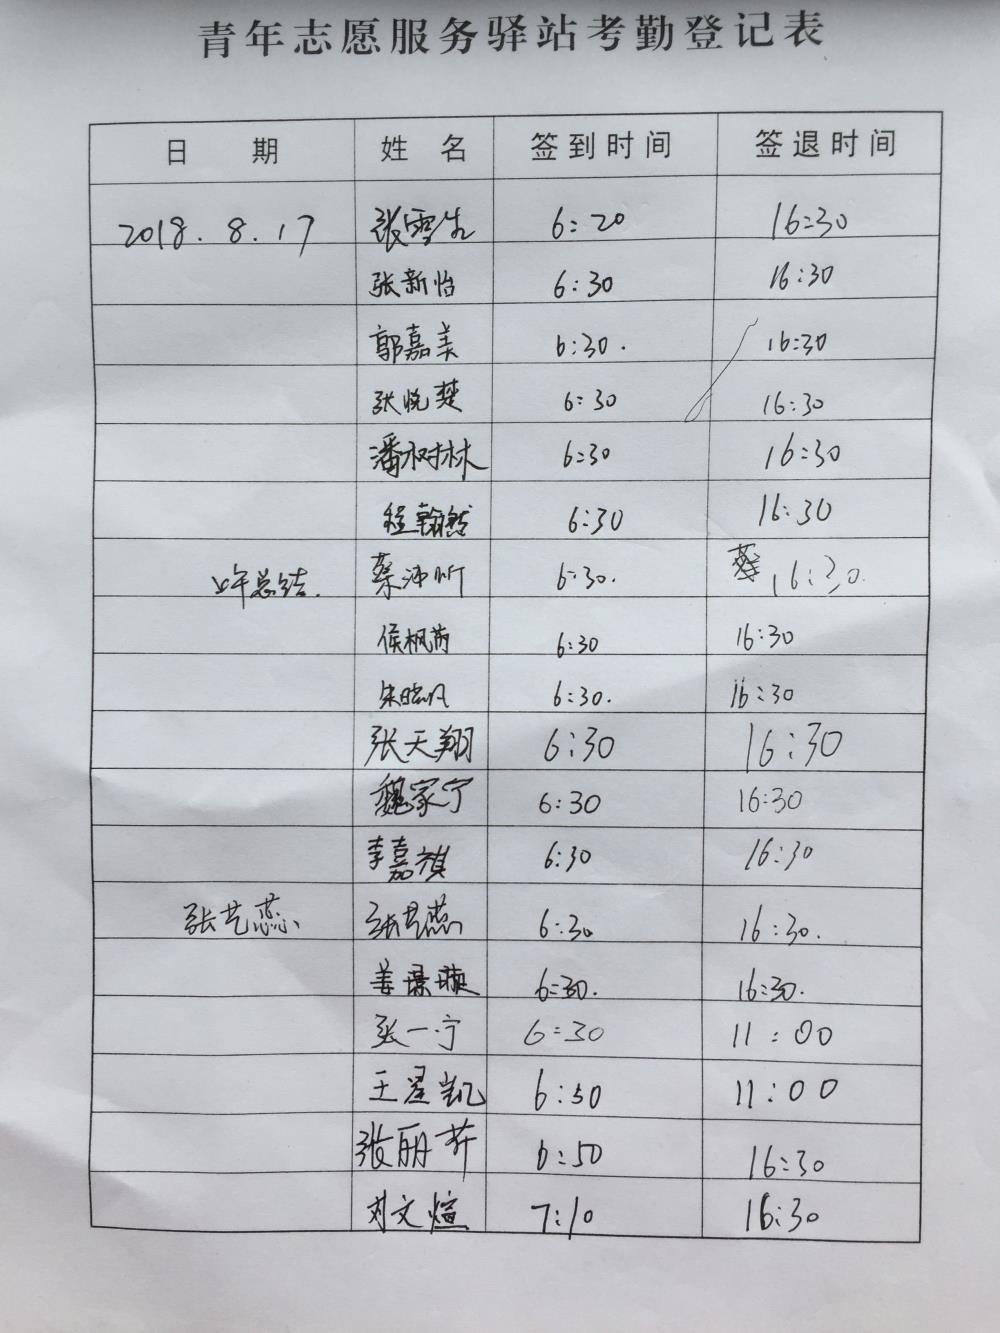 青年志愿服务驿站考勤登记表
日 期 姓 名 签到时间 签退时间
2018.8.17 张雪生 6:20 16:30
张新怡 6:30 16:30
郭嘉美 6:30. 16:30
张悦楚 6:30 16:30
潘树林 6:30 16:30
程翰懋 6:30 16:30
上午总结. 蔡沛昕 6:30. 蔡 16:30.
侯枫芮 6:30 16:30
朱晓帆 6:30. 16:30
张天翔 6:30 16:30
魏家宁 6:30 16:30
李嘉祺 6:30 16:30
张艺蕊 张艺蕊 6:30 16:30.
姜璟璇 6:30. 16:30.
张一宁 6:30 11:00
王星凯 6:50 11:00
张丽芬 6:50 16:30
刘文煊 7:10 16:30